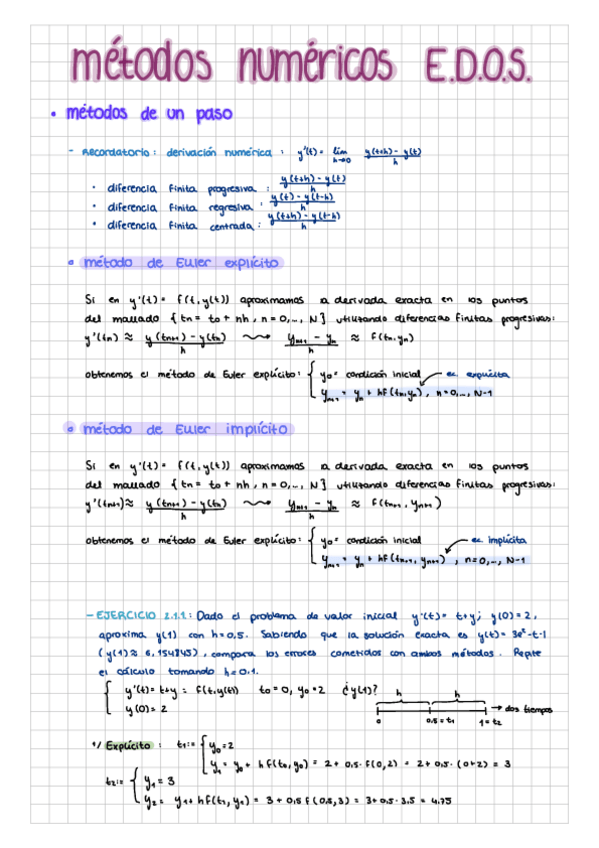 métodos numéricos E.D.O.S.
• métodos de un paso
- Recordatorio: derivación numérica: y'(t) = lim h→0 (y(t+h) - y(t))/h
• diferencia finita progresiva: (y(t+h) - y(t))/h
• diferencia finita regresiva: (y(t) - y(t-h))/h
• diferencia finita centrada: (y(t+h) - y(t-h))/h
método de Euler explícito
Si en y'(t) = f(t,y(t)) aproximamos la derivada exacta en los puntos
del mallado {tn = t0 + nh, n = 0,..., N} utilizando diferencias finitas progresivas:
y'(tn) ≈ (y(tn+1) - y(tn))/h ⟿ (yn+1 - yn)/h ≈ f(tn,yn)
obtenemos el método de Euler explícito: { y0 = condición inicial ← ec. explícita
yn+1 = yn + hf(tn,yn), n=0,..., N-1
método de Euler implícito
Si en y'(t) = f(t,y(t)) aproximamos la derivada exacta en los puntos
del mallado {tn = t0 + nh, n = 0,..., N} utilizando diferencias finitas progresivas:
y'(tn+1) ≈ (y(tn+1) - y(tn))/h ⟿ (yn+1 - yn)/h ≈ f(tn+1, yn+1)
obtenemos el método de Euler explícito: { y0 = condición inicial ← ec. implícita
yn+1 = yn + hf(tn+1, yn+1), n=0,..., N-1
- EJERCICIO 2.1.1: Dado el problema de valor inicial y'(t) = t+y; y(0) = 2,
aproxima y(1) con h=0,5. Sabiendo que la solución exacta es y(t) = 3e^t-t-1
(y(1) ≈ 6,154845), compara los errores cometidos con ambos métodos. Repite
el cálculo tomando h=0.1.
{ y'(t) = t+y = f(t,y(t)) t0 = 0, y0 = 2 ¿y(1)? h h
y(0) = 2 → dos tiempos
0 0,5 = t1 1 = t2
1/ Explícito: t1:= { y0 = 2
y1 = y0 + hf(t0,y0) = 2 + 0,5·f(0,2) = 2 + 0,5·(0+2) = 3
t2:= { y1 = 3
y2 = y1 + hf(t1,y1) = 3 + 0,5 f(0,5,3) = 3 + 0,5·3,5 = 4.75